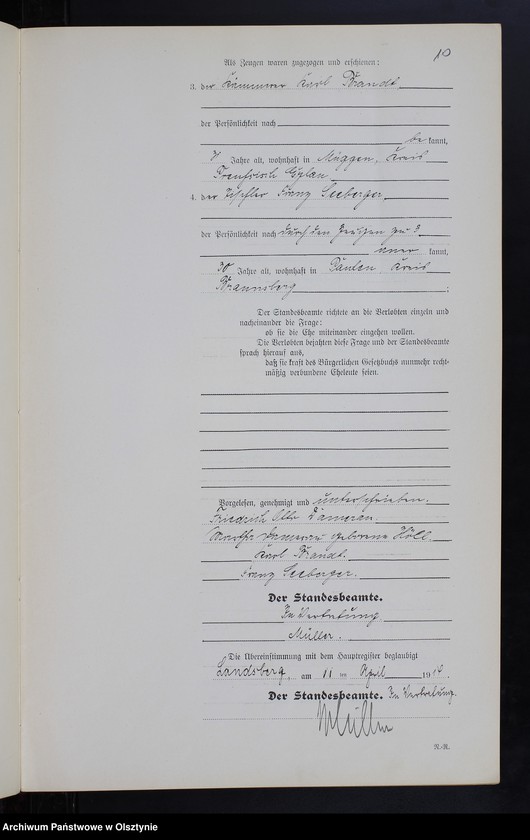 10
Als Zeugen waren zugezogen und erschienen:
3. der Kämmerer Karl Brandt
der Persönlichkeit nach
be kannt,
Jahre alt, wohnhaft in Müggen, Kreis
Preußisch Eylau
4. der Tischler Franz Seeberger
der Persönlichkeit nach durch den Zeugen zu 3
aner kannt,
30 Jahre alt, wohnhaft in Paulen Kreis
Braunsberg.
Der Standesbeamte richtete an die Verlobten einzeln und
nacheinander die Frage:
ob sie die Ehe miteinander eingehen wollen.
Die Verlobten bejahten diese Frage und der Standesbeamte
sprach hierauf aus,
daß sie kraft des Bürgerlichen Gesetzbuchs nunmehr recht-
mäßig verbundene Eheleute seien.
Vorgelesen, genehmigt und unterschrieben.
Friedrich Otto Damerau.
Martha Damerau geborene Höll.
Karl Brandt.
Franz Seeberger.
Der Standesbeamte.
In Vertretung.
Müller.
Die Übereinstimmung mit dem Hauptregister beglaubigt
Landsberg, am 11 ten April 1914.
Der Standesbeamte. In Vertretung.
Müller
N.-R.
Archiwum Państwowe w Olsztynie